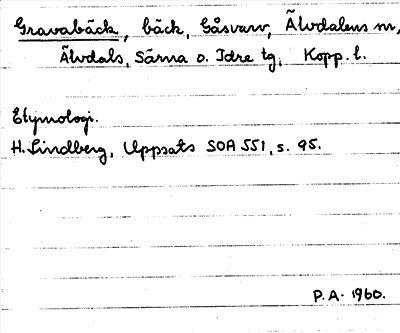 Gravabäck, bäck, Gåsvarv, Älvdalens m,
Älvdals, Särna o. Idre tg, Kopp. l.
Etymologi.
H. Lindberg, Uppsats SOA 551, s. 95.
P.A. 1960.